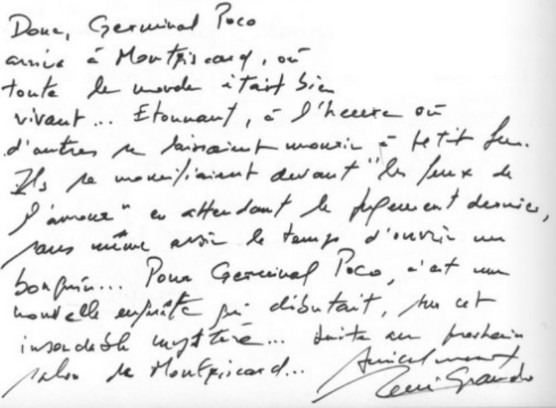 Donc, Germinal Poco
arriva à Montgiscard, où
toute le monde était bien
vivant... Etonnant, à l'heure où
d'autres se laissaient mourir à petit feu.
Ils se momifiaient devant "les feux de
l'amour" en attendant le jugement dernier,
sans même avoir le temps d'ouvrir un
bouquin... Pour Germinal Poco, c'est une
nouvelle enquête qui débutait, sur cet
insondable mystère... Suite au prochain
salon de Montgiscard...
Amicalement